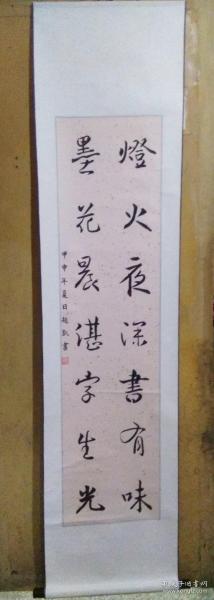 燈火夜深書有味
墨花晨湛字生光
甲申年夏日趙凱書